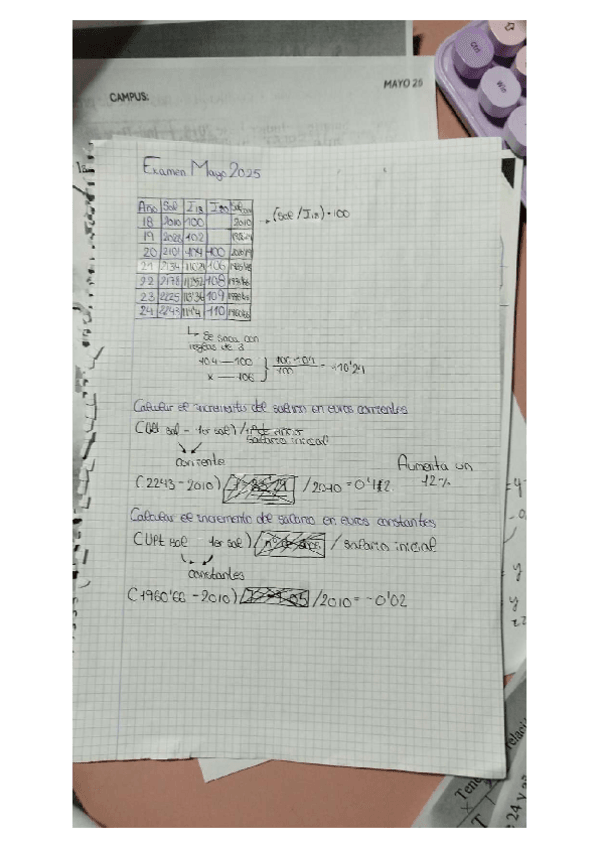 MAYO 25
CAMPUS:
Examen Mayo 2025
Año Sal I18 I20
18 2010 100 2010 → (Sal / I18) · 100
19 2028 102
20 2101 104 100
21 2134 110'24 106
22 2178 108
23 2225 113'36 109
24 2243 114'4 110 1960'66
↳ Se saca con
reglas de 3
104 — 100
x — 106
= 110'24
Calcular el incremento del salario en euros corrientes
(Ult sal - 1er sal) /
salario inicial
corriente
Aumenta un
12%
(2243 - 2010) / 2010 = 0'112
Calcular el incremento del salario en euros constantes
(Ult sal 1er sal) / salario inicial
constantes
(1960'66 - 2010) / 2010 = -0'02